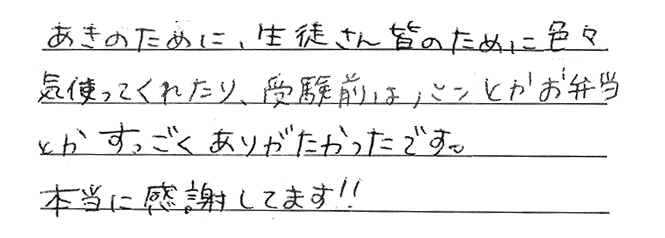 あきのために、生徒さん皆のために色々
気使ってくれたり、受験前は、パンとかお弁当
とかすっごくありがたかったです。
本当に感謝してます!!